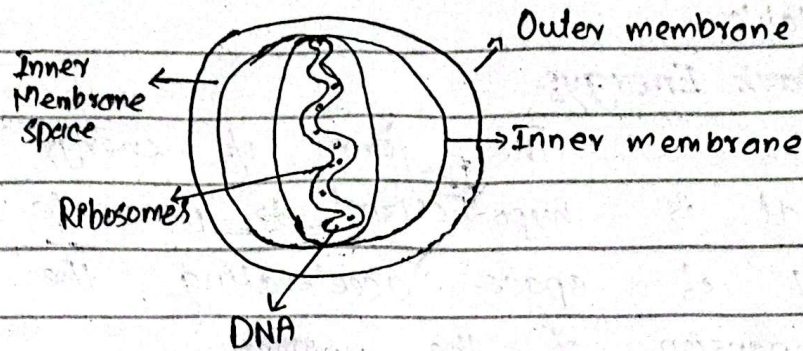 Outer membrane
Inner
Membrane
space
Inner membrane
Ribosomes
DNA